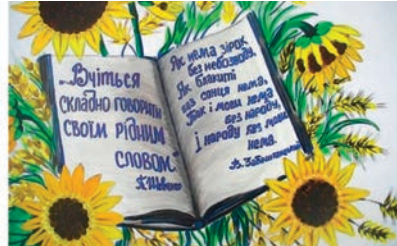 „Вчіться
складно говорити
своїм рідним
словом"
Т. Шевченко
Як нема зірок
без небозводу,
Як блакиті
без сонця нема,
Так і мови нема
без народу,
і народу без мови
нема.
В. Забаштанський